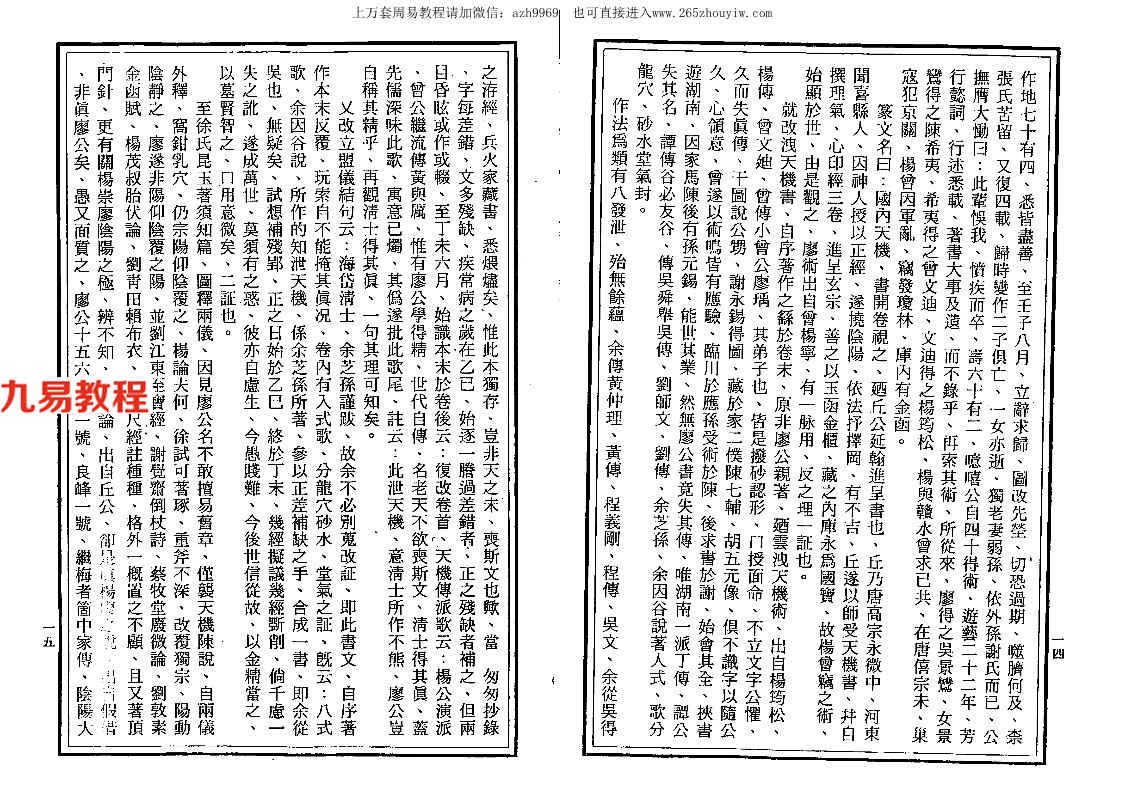 上万套周易教程请加微信：azh9969　也可直接进入www.265zhouyiw.com
作地七十有四、悉皆盡善、至壬子八月、立辭求歸、圖改先塋、切恐過期、噬臍何及、柰
張氏苦留、又復四載、歸時變作二子俱亡、一女亦逝、獨老妻弱孫、依外孫謝氏而已、公
撫膺大慟曰：此輩悞我、憤疾而卒、壽六十有二、噫嘻公自四十得術、遊藝二十二年、芳
行懿詞、行述悉載、著書大事及遺、而不錄乎、再索其術、所從來、廖得之吳景鸞、女景
鸞得之陳希夷、希夷得之曾文迪、文迪得之楊筠松、楊與贛水曾求已共、在唐僖宗末、巢
寇犯京關、楊曾因軍亂、竊發瓊林、庫內有金函。
篆文名曰：國內天機、書開卷視之、廼丘公延翰進呈書也、丘乃唐高宗永徽中、河東
聞喜縣人、因神人授以正經、遂撓陰陽、依法抒擇岡、有不吉、丘遂以師受天機書、幷自
撰理氣、心印經三卷、進呈玄宗、善之以玉函金櫃、藏之內庫永為國寶、故楊曾竊之術、
始顯於世、由是觀之、廖術出自曾楊寧、有一脉用、反之理一証也。
就改洩天機書、自序著作之繇於卷末、原非廖公親著、廼雲洩天機術、出自楊筠松、
楊傳、曾文廸、曾傳小曾公廖瑀、其弟子也、皆是撥砂認形、口授面命、不立文字公懼、
久而失眞傳、于圖說公甥、謝永錫得圖、藏於家二僕陳七輔、胡五元像、俱不識字以隨公
久、心領意、曾遂以術鳴皆有應驗、臨川於應孫受術於陳、後求書於謝、始會其全、挾書
遊湖南、因家馬陳後有孫元錫、能世其業、然無廖公書竟失其傳、唯湖南一派丁傳、譚公
失其名、譚傳谷必友谷、傳吳舜舉吳傳、劉師文、劉傳、余芝孫、余因谷說著人式、歌分
龍穴、砂水堂氣封。
作法為類有八發泄、殆無餘蘊、余傳黃仲理、黃傳、程義剛、程傳、吳文、余從吳得
一四
之洊經、兵火家藏書、悉煨燼矣、惟此本獨存、豈非天之未、喪斯文也歟、當　匆匆抄錄
、字每差錯、文多殘缺、疾常病之歲在乙巳、始逐一謄過差錯者、正之殘缺者補之、但兩
目昏眩或作或輟、至丁未六月、始識本末於卷後云：復改卷首、天機傳派歌云：楊公演派
、曾公繼流傳黃與厲、惟有廖公學得精、世代自傳、名老天不欲喪斯文、清士得其眞、蓋
先儒深味此歌、寓意已燭、其僞遂批此歌尾、註云：此泄天機、意清士所作不熊、廖公豈
自稱其精乎、再觀淸士得其眞、一句其理可知矣。
又改立盟儀結句云：海岱淸士、余芝孫謹跋、故余不必別蒐改証、即此書文、自序著
作本末反覆、玩索自不能掩其眞况、卷內有入式歌、分龍穴砂水、堂氣之証、旣云：八式
歌、余因谷說、所作的知泄天機、係余芝孫所著、參以正差補缺之手、合成一書、即余從
吳也、無疑矣、試想補殘郢、正之日始於乙巳、終於丁未、幾經擬議幾經斲削、倘千慮一
失之訛、遂成萬世、莫須有之惑、彼亦自慮生、今愚賤難、今後世信從故、以金精當之、
以墓賢智之、口用意微矣、二証也。
至徐氏昆玉著須知篇、圖釋兩儀、因見廖公名不敢擅易舊章、僅襲天機陳說、自兩儀
外釋、窩鉗乳穴、仍宗陽仰陰覆之、楊論夫何、徐試可著琢、重斧不深、改覆獨宗、陽動
陰靜之、廖遂非陽仰陰覆之陽、並劉江東至寶經、謝覺齋倒杖詩、蔡牧堂廢微論、劉敦素
金函賦、楊茂叔胎伏論、劉靑田賴布衣、尺經註種種、格外一概置之不顧、且又著頂
門針、更有關楊崇廖陰陽之極、辨不知、論、出自丘公、
、非眞廖公矣、愚又面質之、廖公十五六一號、良峰一號、繼梅者箇中家傳、陰陽大
一五
九易教程